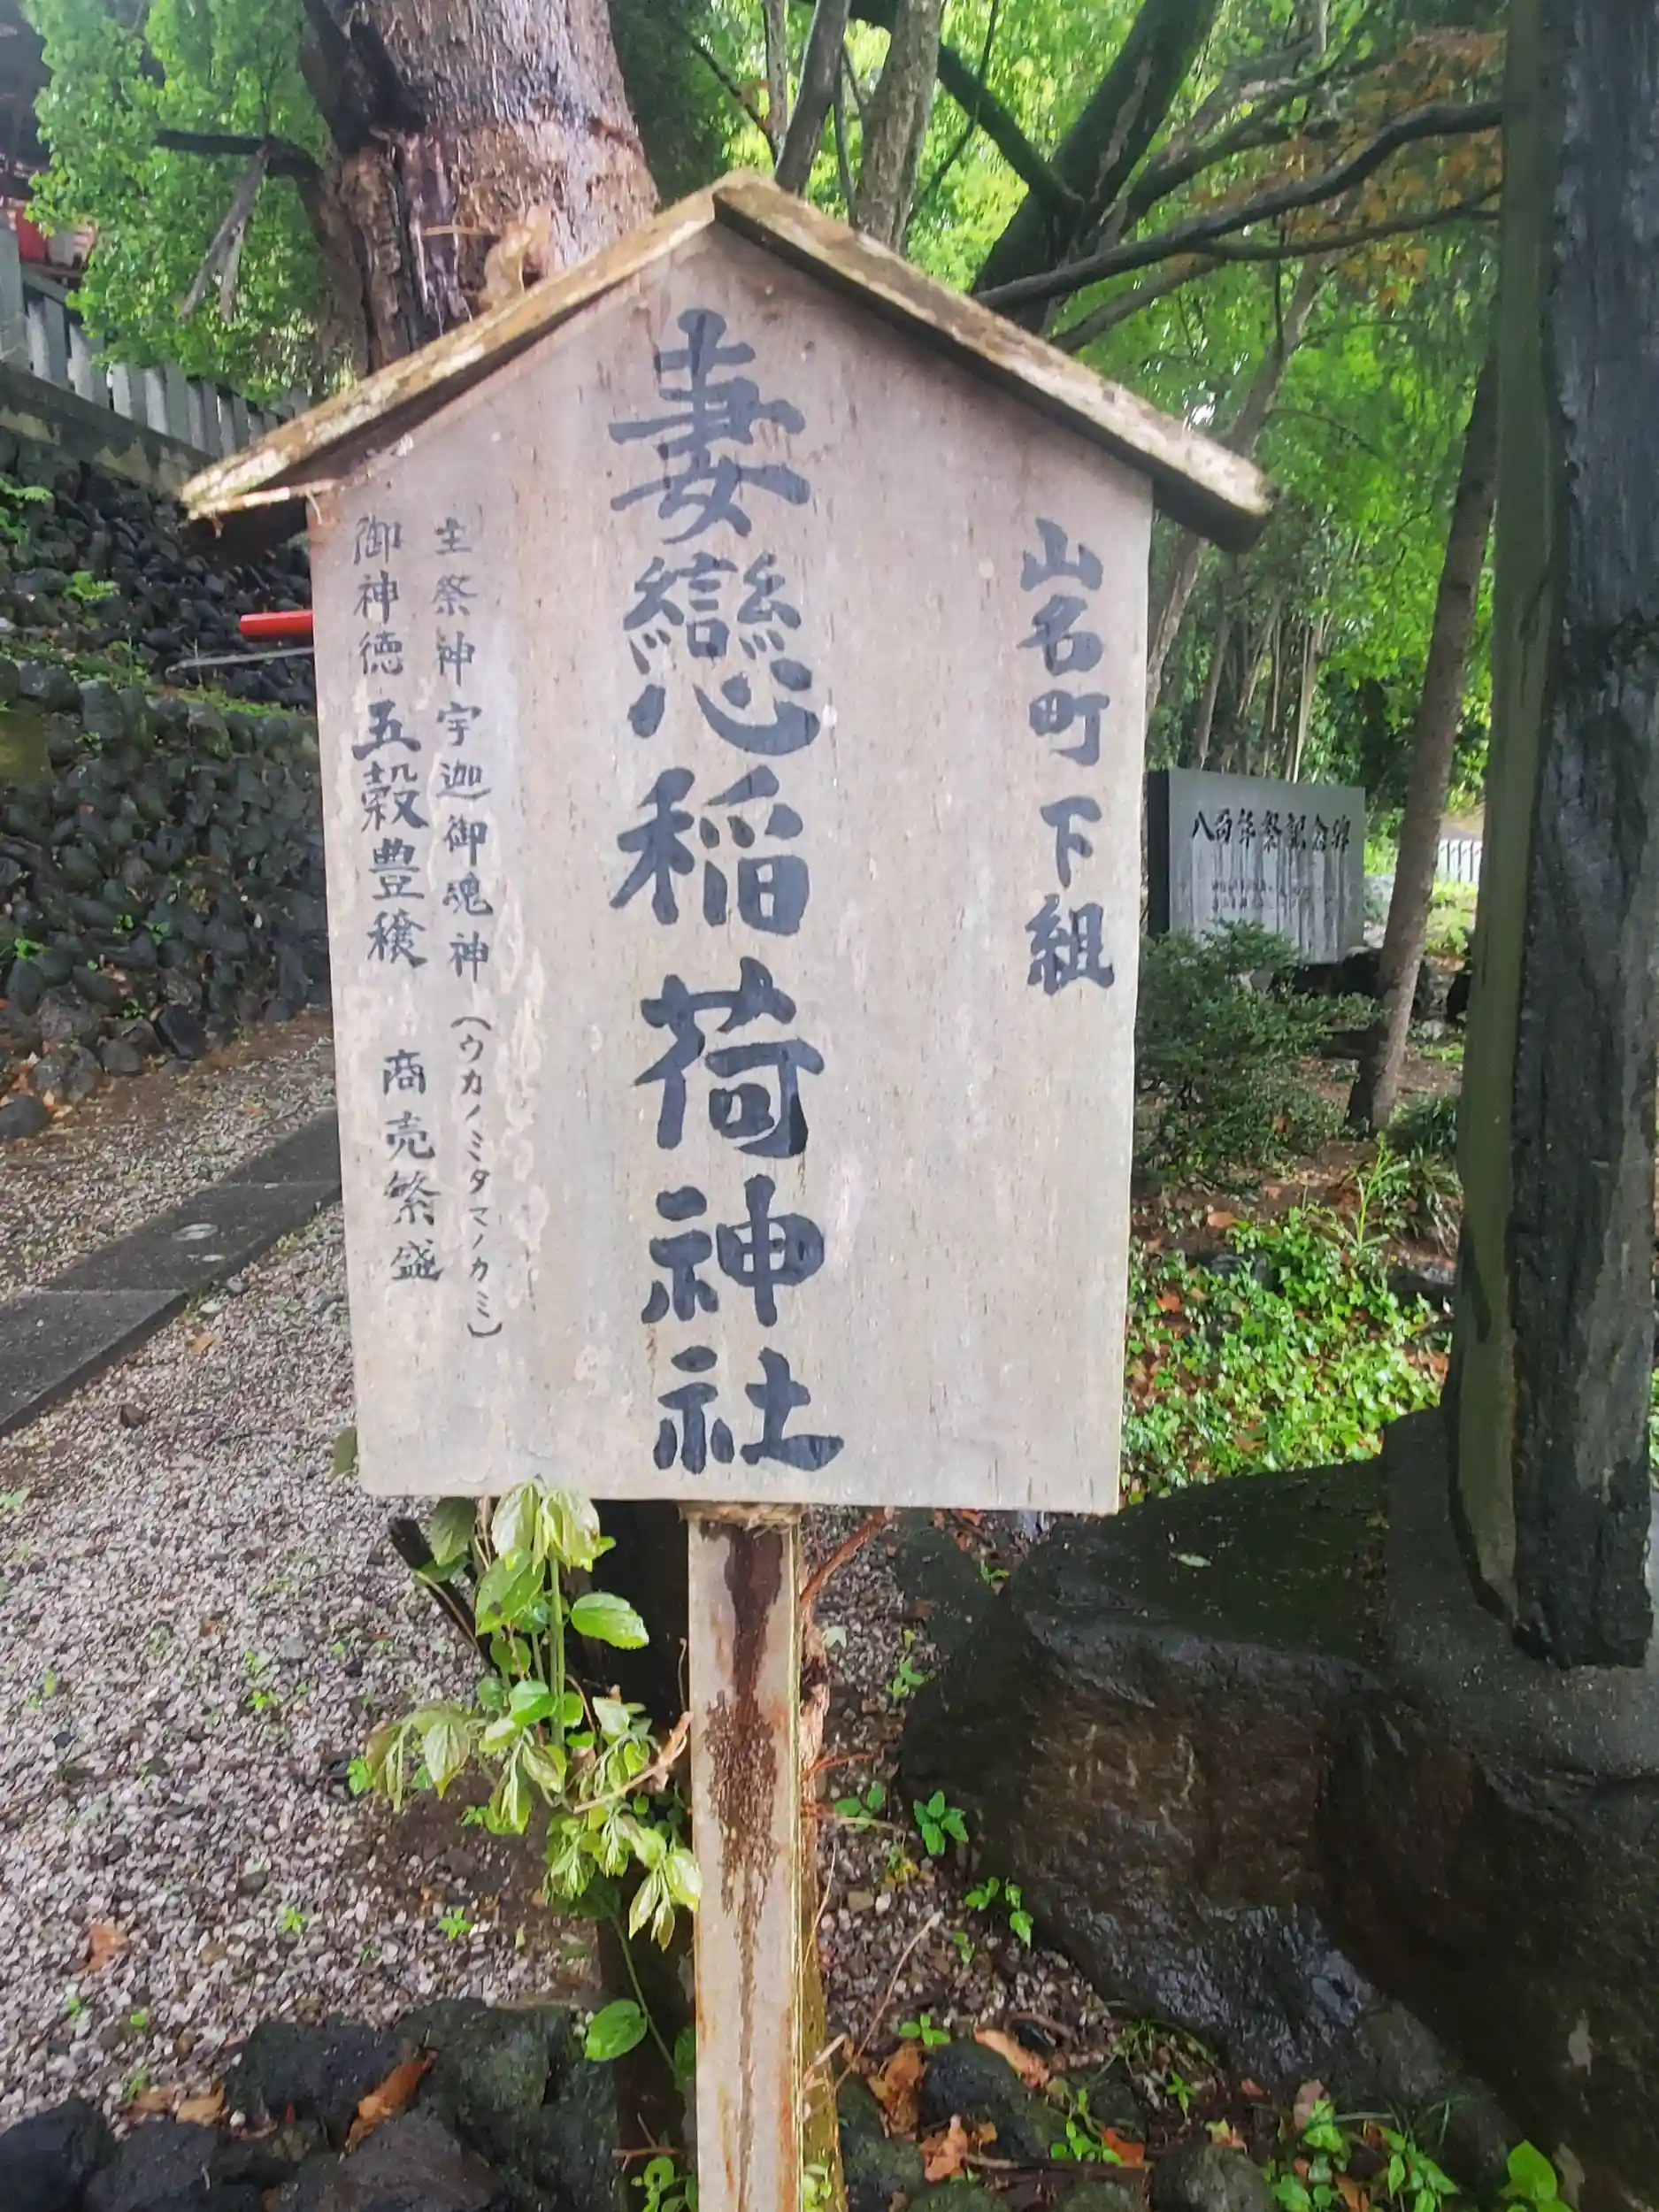 山名町 下組
妻戀稲荷神社
主祭神 宇迦御魂神(ウカノミタマノカミ)
御神徳 五穀豊穣 商売繁盛
八百年祭記念碑